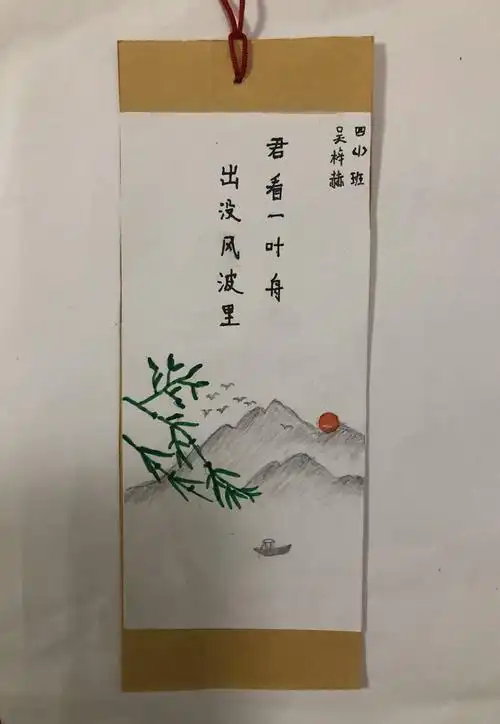 四(小)班
吴梓赫
君看一叶舟
出没风波里